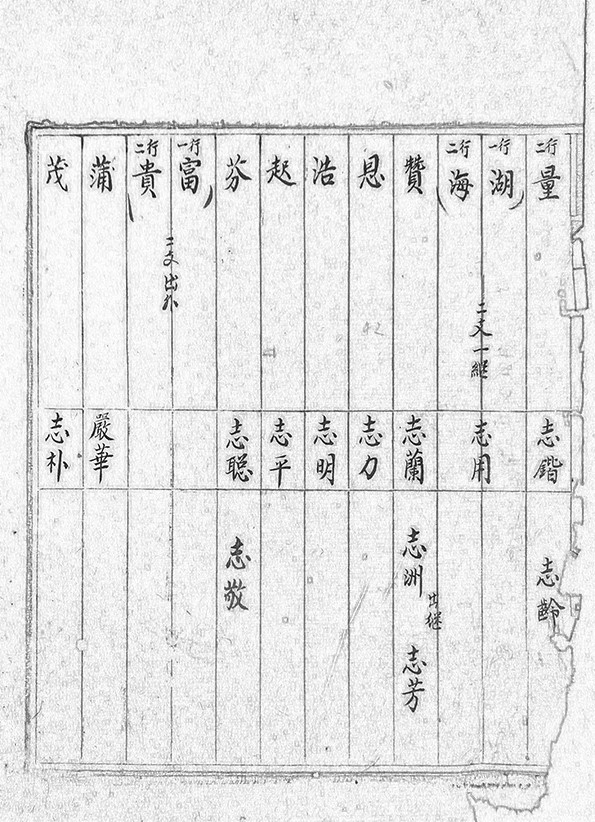 二行 量 志鐕 志齡
一行 湖
二文一繼 志用
二行 海
贊 志蘭 志洲 出継 志芳
恩 志力
浩 志明
起 志平
芬 志聪 志敬
一行 富
二文出外
二行 貴
蒲 嚴華
茂 志朴